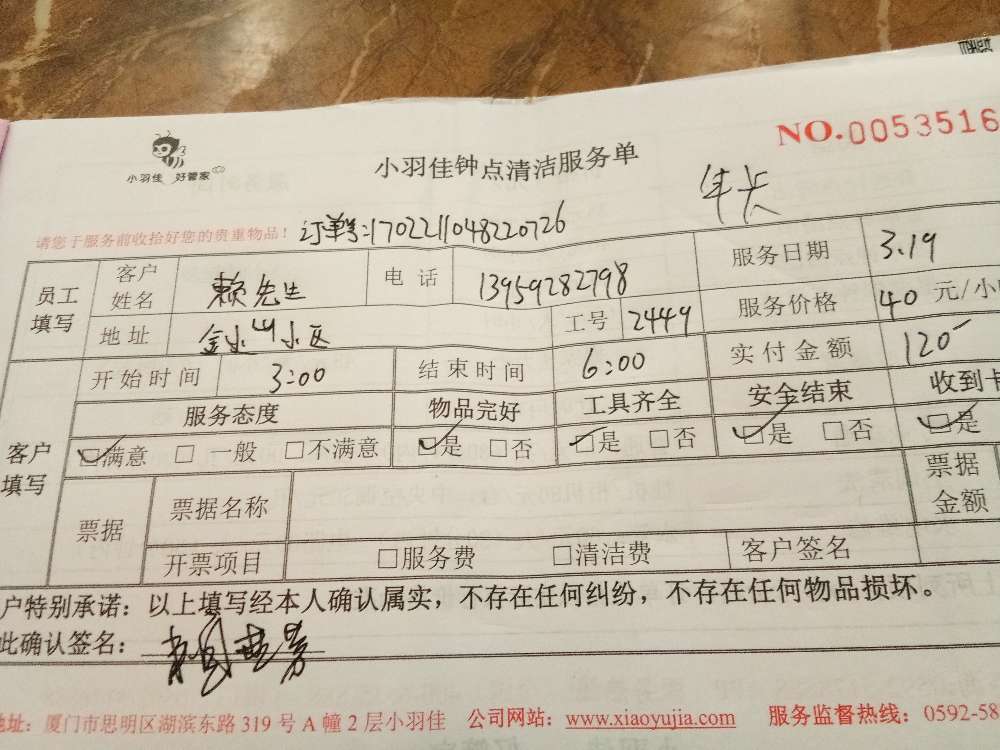 NO.0053516
小羽佳 好管家
小羽佳钟点清洁服务单
年卡
请您于服务前收拾好您的贵重物品! 订单号:1702211048220726
员工填写 客户姓名 赖先生 电话 13959282798 服务日期 3.19
地址 金山小区 工号 2449 服务价格 40 元/小
客户填写 开始时间 3:00 结束时间 6:00 实付金额 120
服务态度 物品完好 工具齐全 安全结束 收到卡
☑满意 □一般 □不满意 ☑是 □否 ☑是 □否 ☑是 □否 ☑是
票据 票据名称 票据金额
开票项目 □服务费 □清洁费 客户签名
户特别承诺:以上填写经本人确认属实,不存在任何纠纷,不存在任何物品损坏。
此确认签名:
地址:厦门市思明区湖滨东路 319 号 A 幢 2 层小羽佳 公司网站:www.xiaoyujia.com 服务监督热线:0592-58